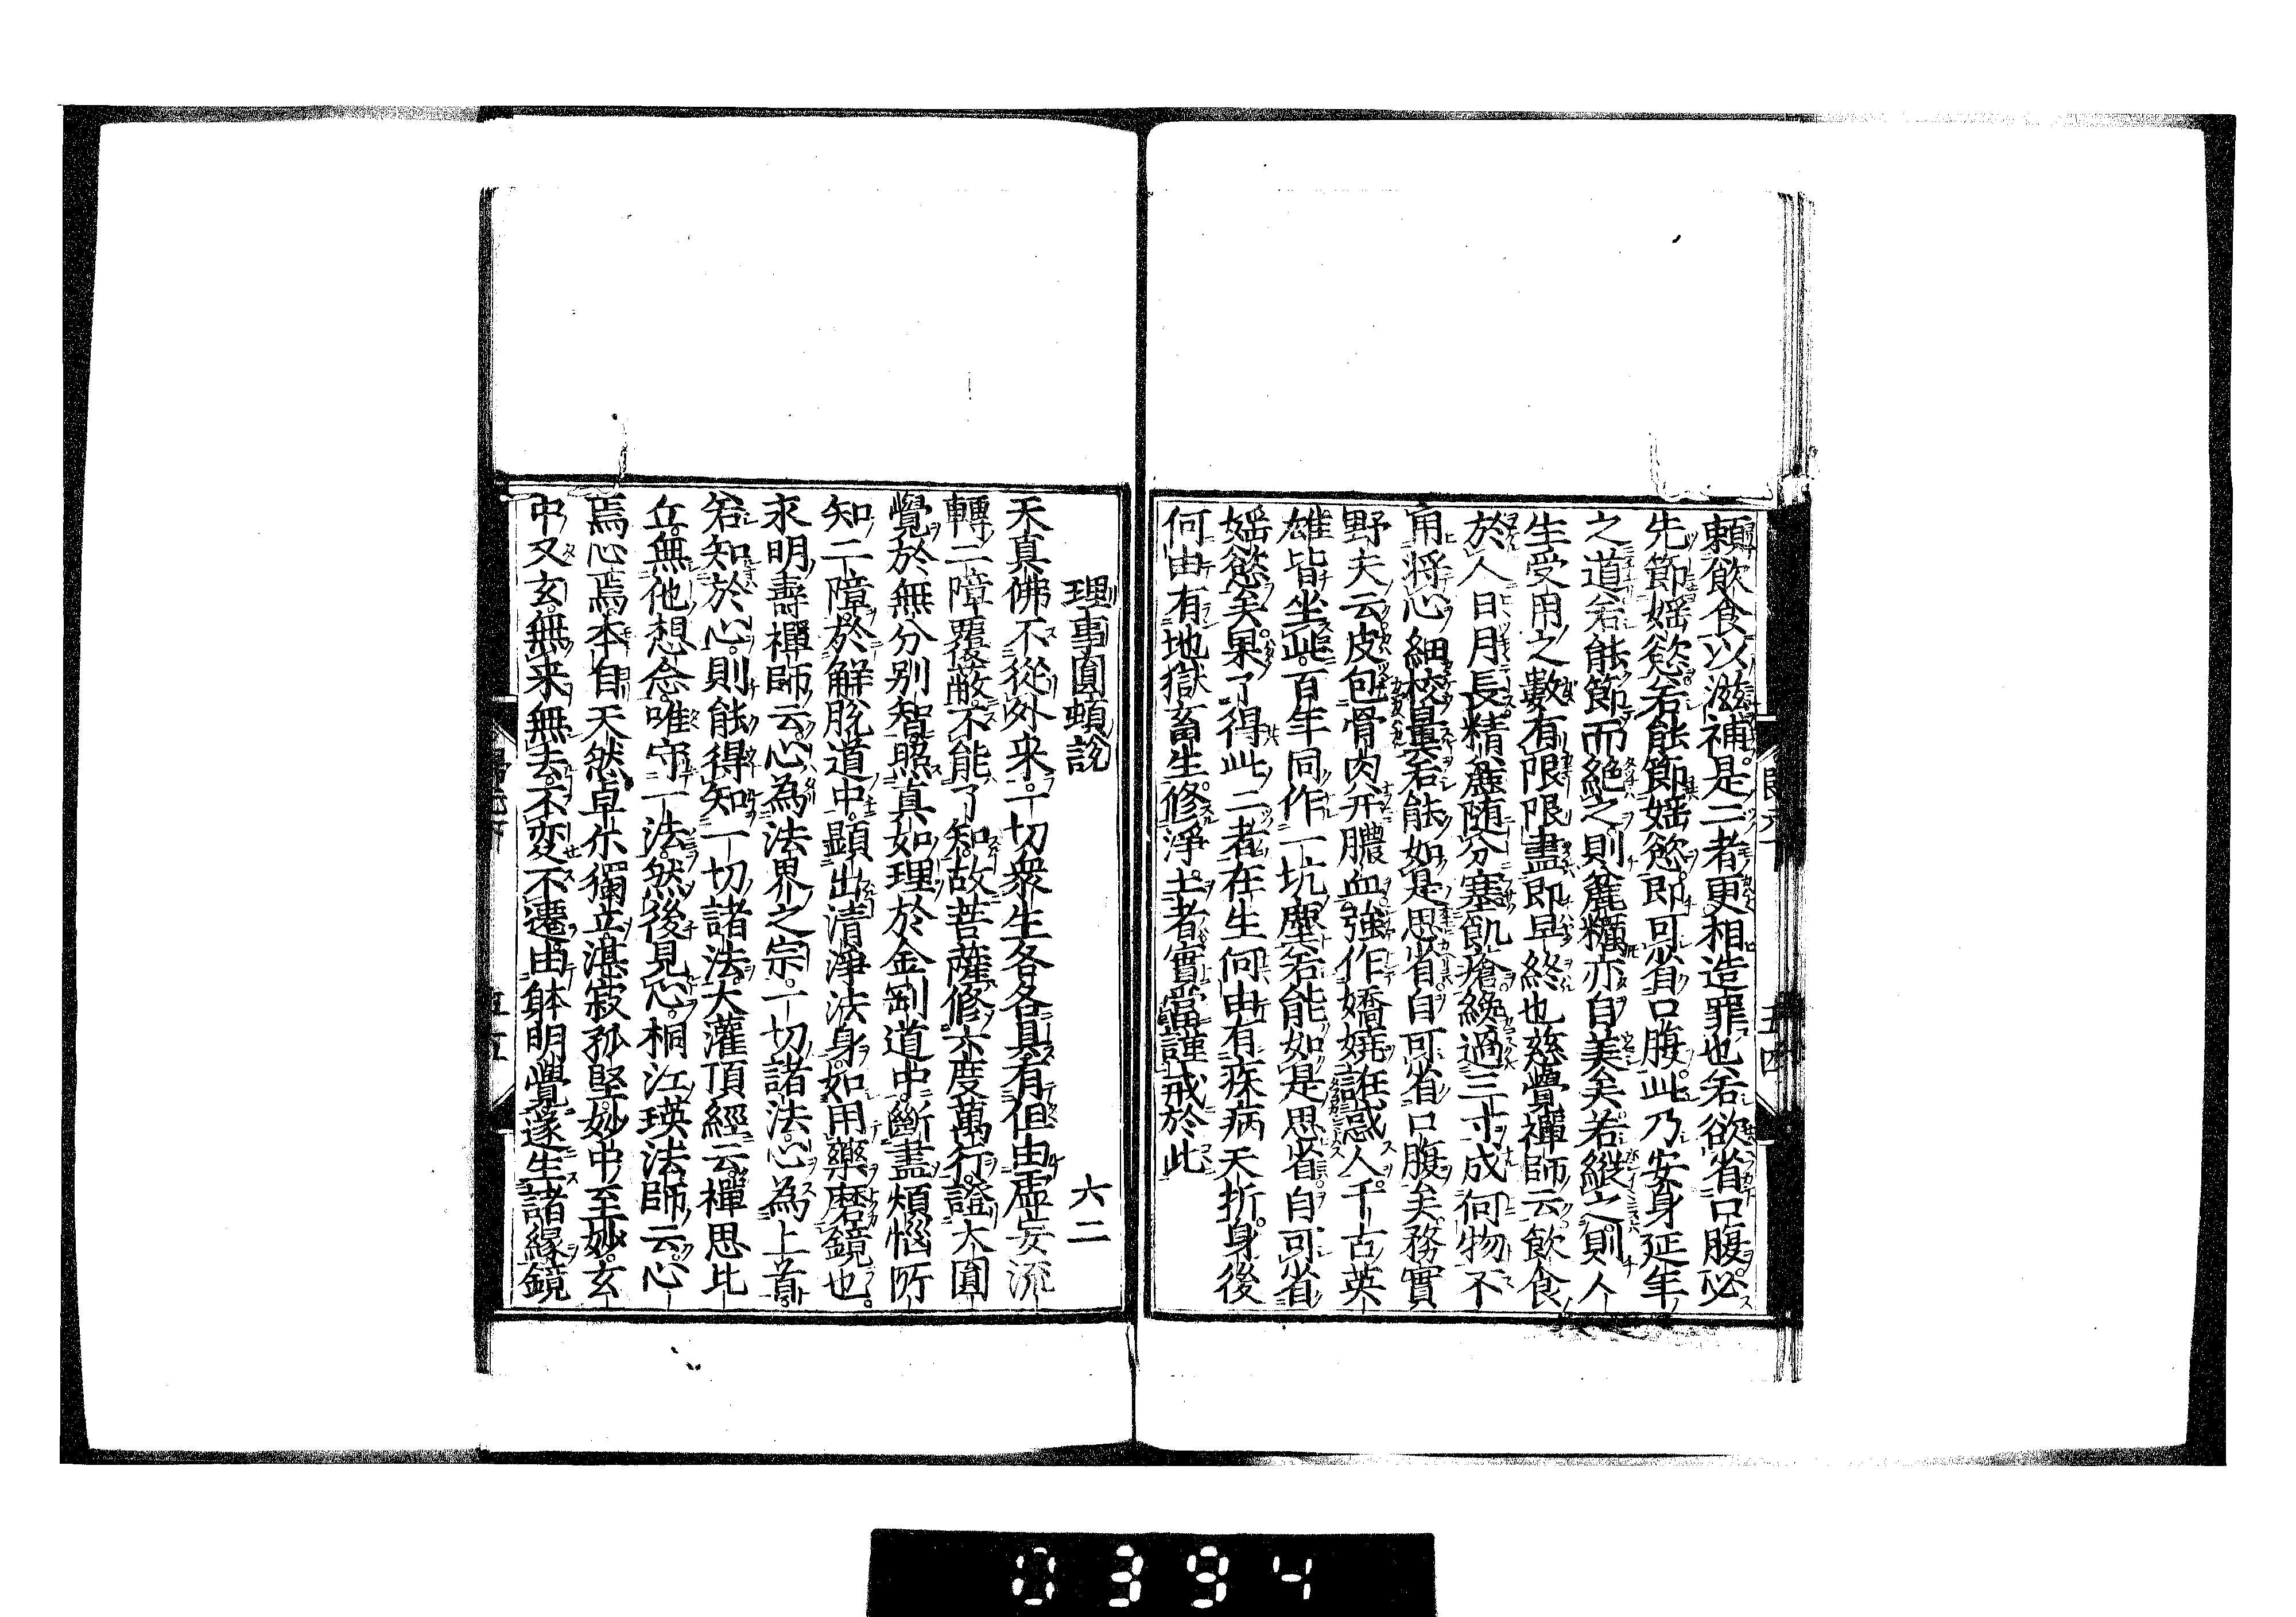 頼飲食以滋補是二者更相造罪也若欲省口腹必
先節婬慾若能節婬慾即可省口腹此乃安身延年
之道若能節而絶之則麁糲亦自美矣若縦之則人
生受用之數有限限盡即早終也慈覺禪師云飲食
於人日月長精麁随分塞飢瘡纔過三寸成何物不
用將心細校量若能如是思省自可省口腹矣務實
野夫云皮包骨肉并膿血強作嬌嬈誑惑人千古英
雄皆坐此百年同作一坑塵若能如是思省自可省
婬慾矣果了得此二者在生何由有疾病夭折身後
何由有地獄畜生修淨土者實當謹戒於此
理事圓頓説　六二
天真佛不從外来一切衆生各各具有但由虚妄流
轉二障覆蔽不能了知故菩薩修六度萬行證大圓
覺於無分别智照真如理於金剛道中斷盡煩惱所
知二障於解脱道中顯出清淨法身如用藥磨鏡也
永明壽禪師云心為法界之宗一切諸法心為上首
若知於心則能得知一切諸法大灌頂經云禪思比
丘無他想念唯守一法然後見心桐江瑛法師云心
焉心焉本自天然卓尓獨立湛寂孤堅妙中至妙玄
中又玄無来無去不変不遷由躰明覺遂生諸緣鏡
0394